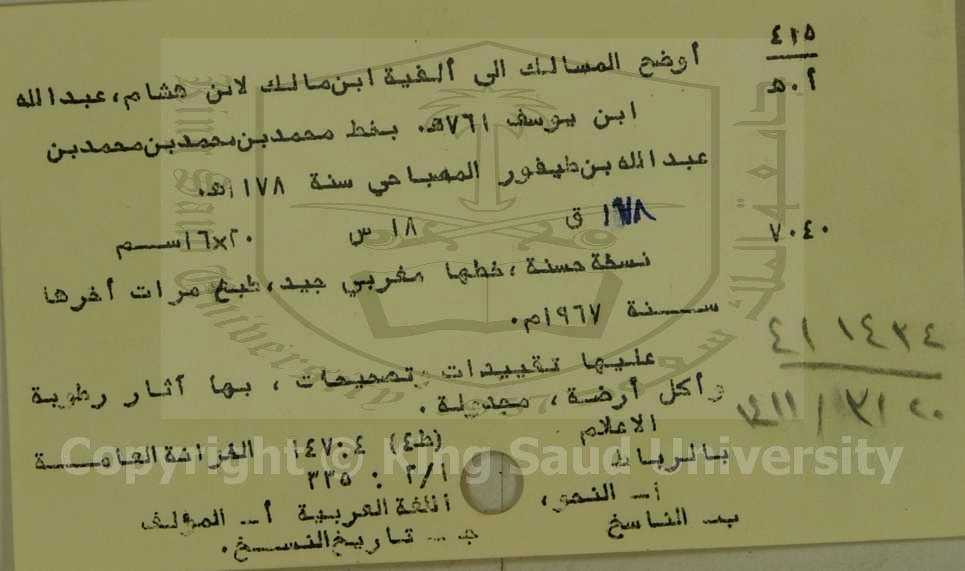 ٤١٥
أ . هـ
أوضح المسالك الى ألفية ابن مالك لابن هشام، عبدالله
ابن يوسف ٧٦١هـ. بخط محمد بن محمد بن محمد بن
عبدالله بن طيفور المصباحي سنة ١١٧٨هـ.
٧٠٤٠
ق ١٨ س ٢٠×١٦سـم
نسخة حسنة، خطها مغربي جيد، طبع مرات أخرها
ســـنة ١٩٦٧م.
عليها تقييدات وتصحيحات، بها آثار رطوبة
وأكل أرضة، مجدولة.
الاعلام (ط٤) ٤:١٤٧ الخزانة العامـــة
بالرباط ٢/١ : ٣٣٥
أ- النحو، اللغة العربية أ- المؤلف
ب- الناسخ ج - تاريخ النسـخ.
٤١ ١٤٣٤
جامعة الملك سعود
King Saud University
Copyright © King Saud University